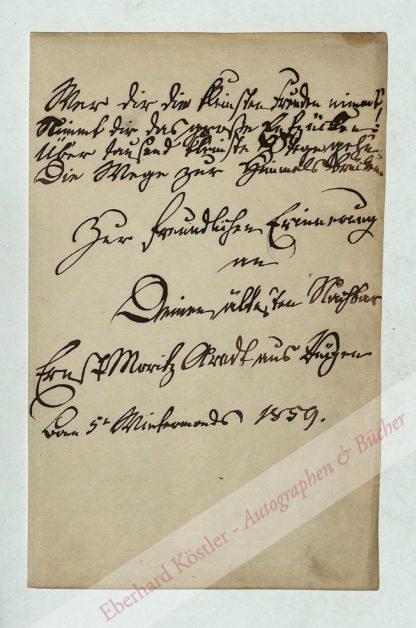 Wer dir die kleinsten Freuden nimmt,
Nimmt dir das große Entzücken:
Über tausend kleinste Stege gehn
Die Wege zur Himmelsbrücken
Zur freundlichen Erinnerung
an
Deinen ältesten Nachbar
Ernst Moritz Arndt aus Rügen
Bonn 5n Wintermonds 1859.
Eberhard Köstler - Autographen & Bücher